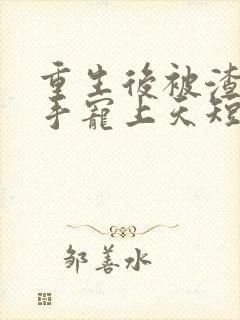 重生後被渣
手寵上天短
邹善水